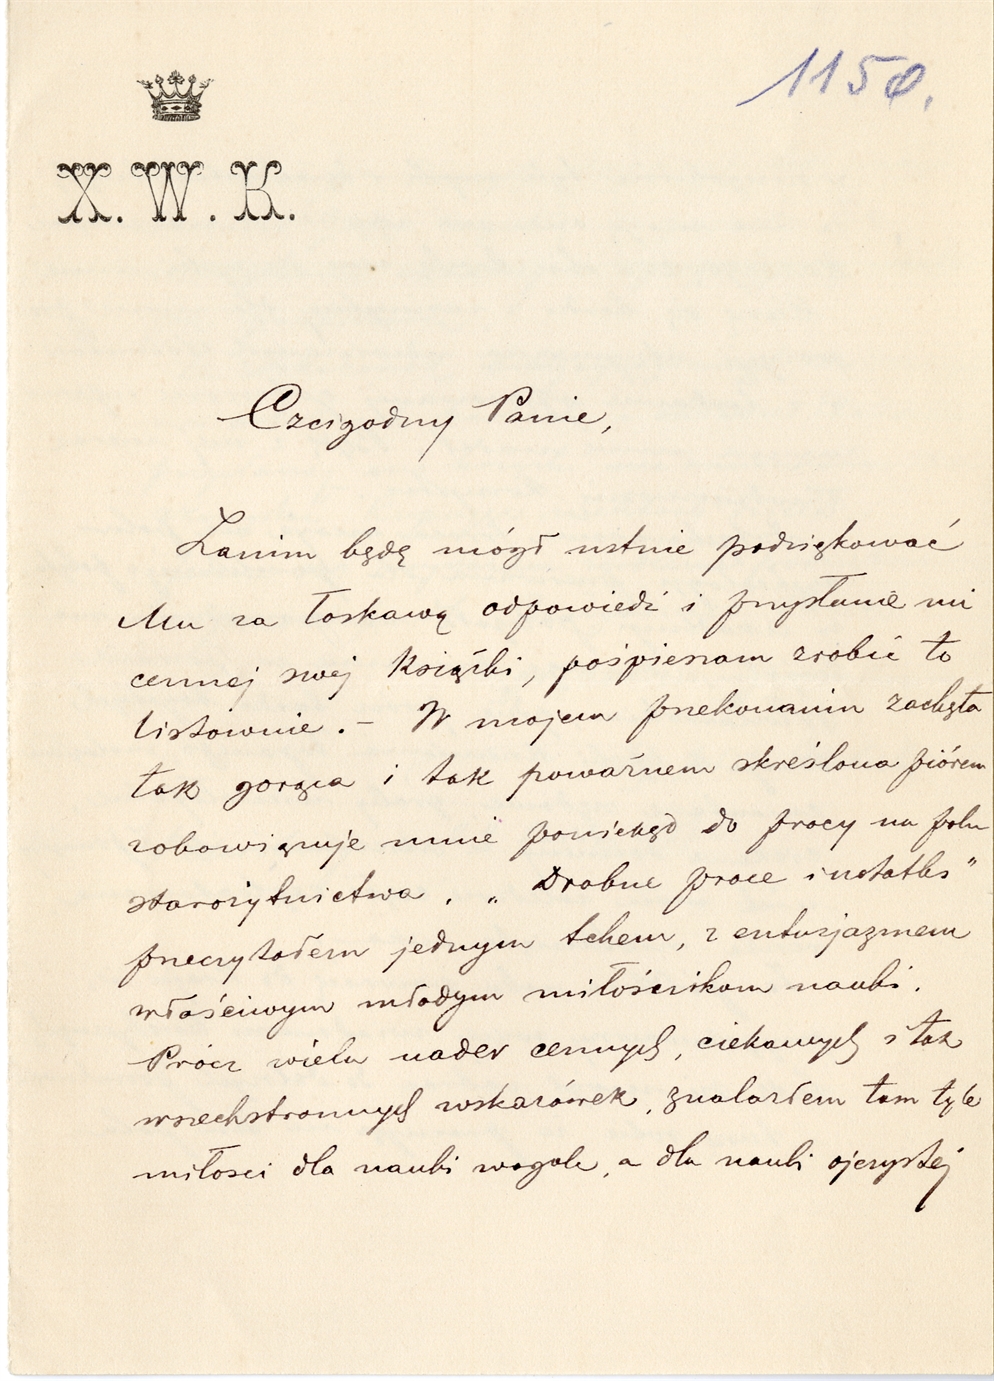 1150.
X. W. K.
Czcigodny Panie,
Zanim będę mógł ustnie podziękować
Mu za łaskawą odpowiedź i przysłanie mi
cennej swej książki, pośpieszam zrobić to
listownie. – W mojem przekonaniu zachęta
tak gorąca i tak poważnem skreślona piórem
zobowiązuje mnie poniekąd do pracy na polu
starożytnictwa. „Drobne prace i notatki"
przeczytałem jednym tchem, z entuzjazmem
właściwym młodym miłośnikom nauki.
Prócz wielu nader cennych, ciekawych i tak
wszechstronnych wskazówek, znalazłem tam tyle
miłości dla nauki wogóle, a dla nauki ojczystej